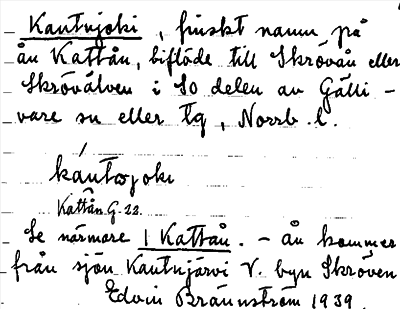 Kautujoki, finskt namn på
ån Kattån, biflöde till Skrövån eller
Skröväven i SO delen av Gälli-
vare sn eller tg, Norrb. l.
Kattån G. 22.
Se närmare 1 Kattån. – ån kommer
från sjön Kautujärvi V. byn Skröven
Edvin Brännström 1939.